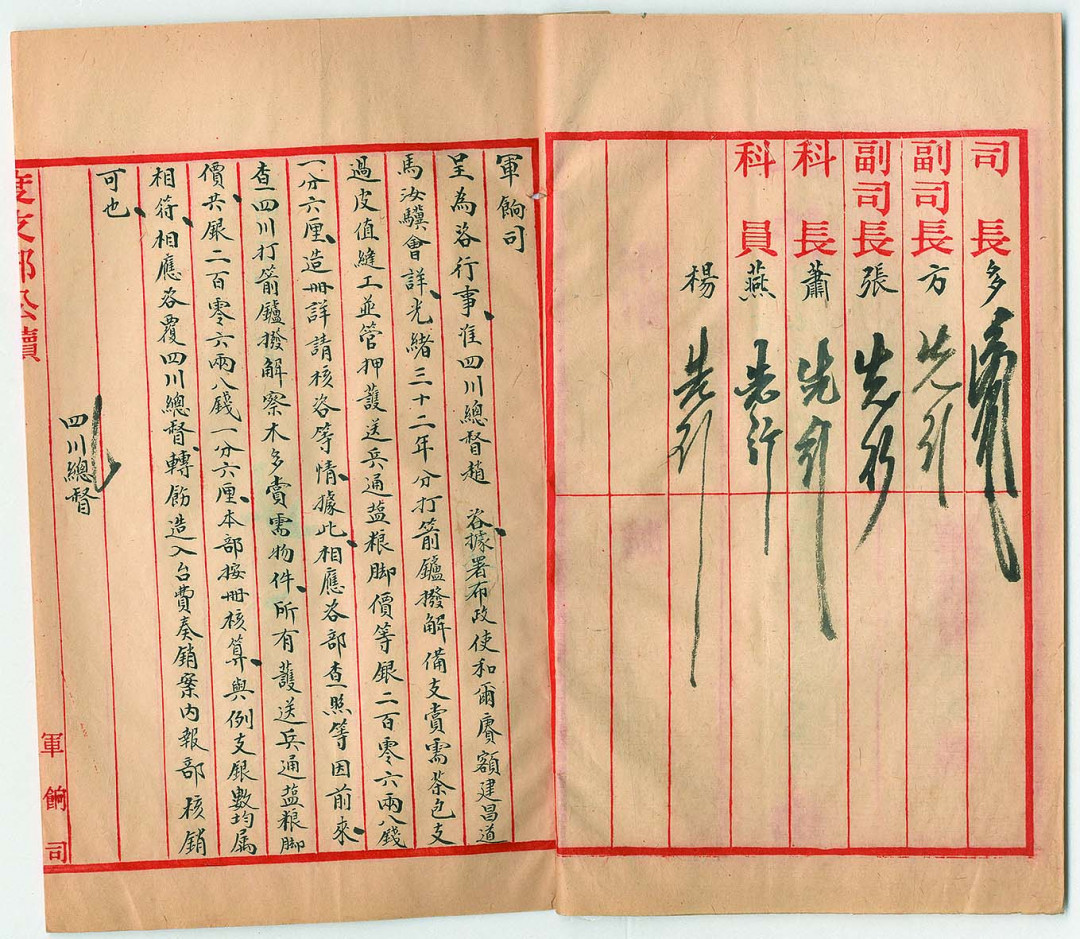 司長 多
副司長 方 先行
副司長 張 先行
科長 蕭 先行
科員 燕 先行
楊 先行
軍餉司
呈為咨行事准四川總督趙 咨據署布政使和爾賡額建昌道
馬汝驥會詳光緒三十二年分打箭鑪撥解備支賞需茶包支
過皮值縫工並管押護送兵通盐粮脚價等銀二百零六兩八錢
一分六厘造冊詳請核咨等情據此相應咨部查照等因前來
查四川打箭鑪撥解察木多賞需物件所有護送兵通盐粮脚
價共銀二百零六兩八錢一分六厘本部按冊核算與例支銀數均屬
相符相應咨覆四川總督轉飭造入台費奏銷案內報部核銷
可也
四川總督
度支部公牘
軍餉司